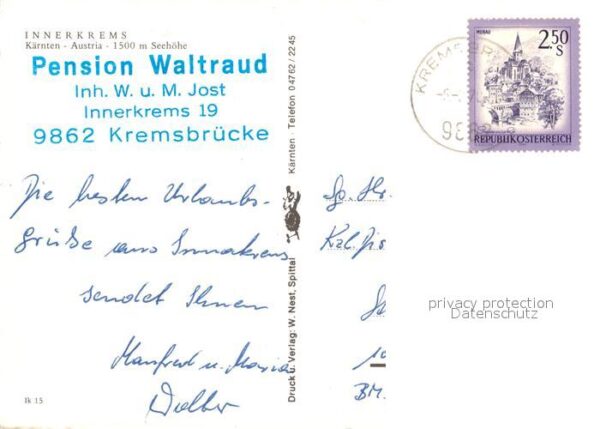 INNERKREMS
Kärnten - Austria - 1500 m Seehöhe
Pension Waltraud
Inh. W. u. M. Jost
Innerkrems 19
9862 Kremsbrücke
Die besten Urlaubs-
grüße aus Innerkrems
sendet Ihnen
Manfred u. Maria
Jk 15
Druck u. Verlag: W. Nest, Spittal
Kärnten - Telefon 04762 / 2245
MURAU
2.50
S
REPUBLIK ÖSTERREICH
KREMSBR
Sp. Hr.
10
BM.
privacy protection
Datenschutz